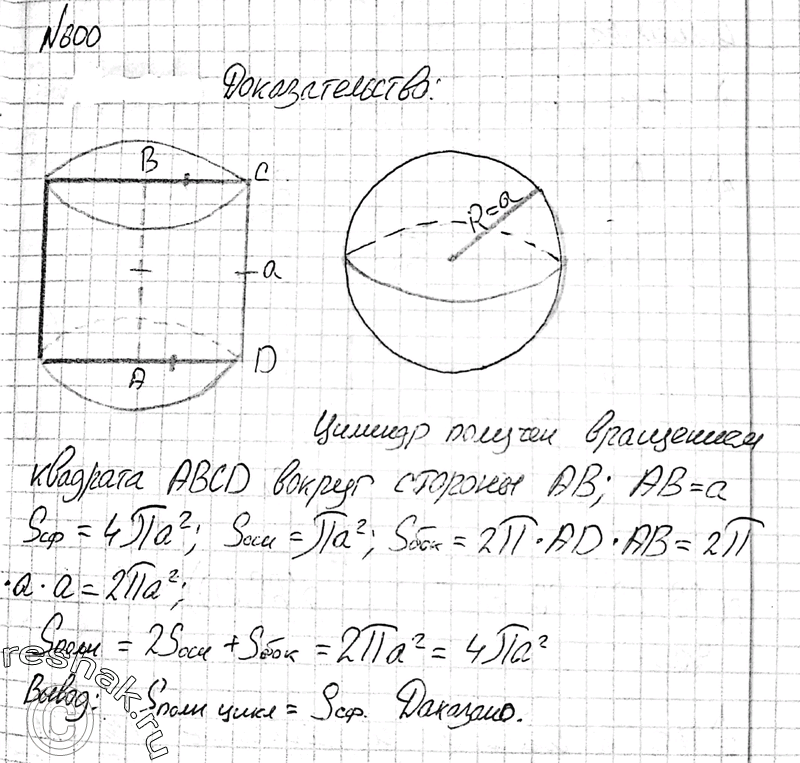 №600
Доказательство:
B
C
R=a
a
A
D
Цилиндр получен вращением
квадрата ABCD вокруг стороны AB; AB=a
Sсф = 4πa²; Sосн = πa²; Sбок = 2π·AD·AB = 2π
·a·a = 2πa²;
Sполн = 2Sосн + Sбок = 2πa² = 4πa²
Вывод: Sполн цил = Sсф. Доказано.
© reshak.ru